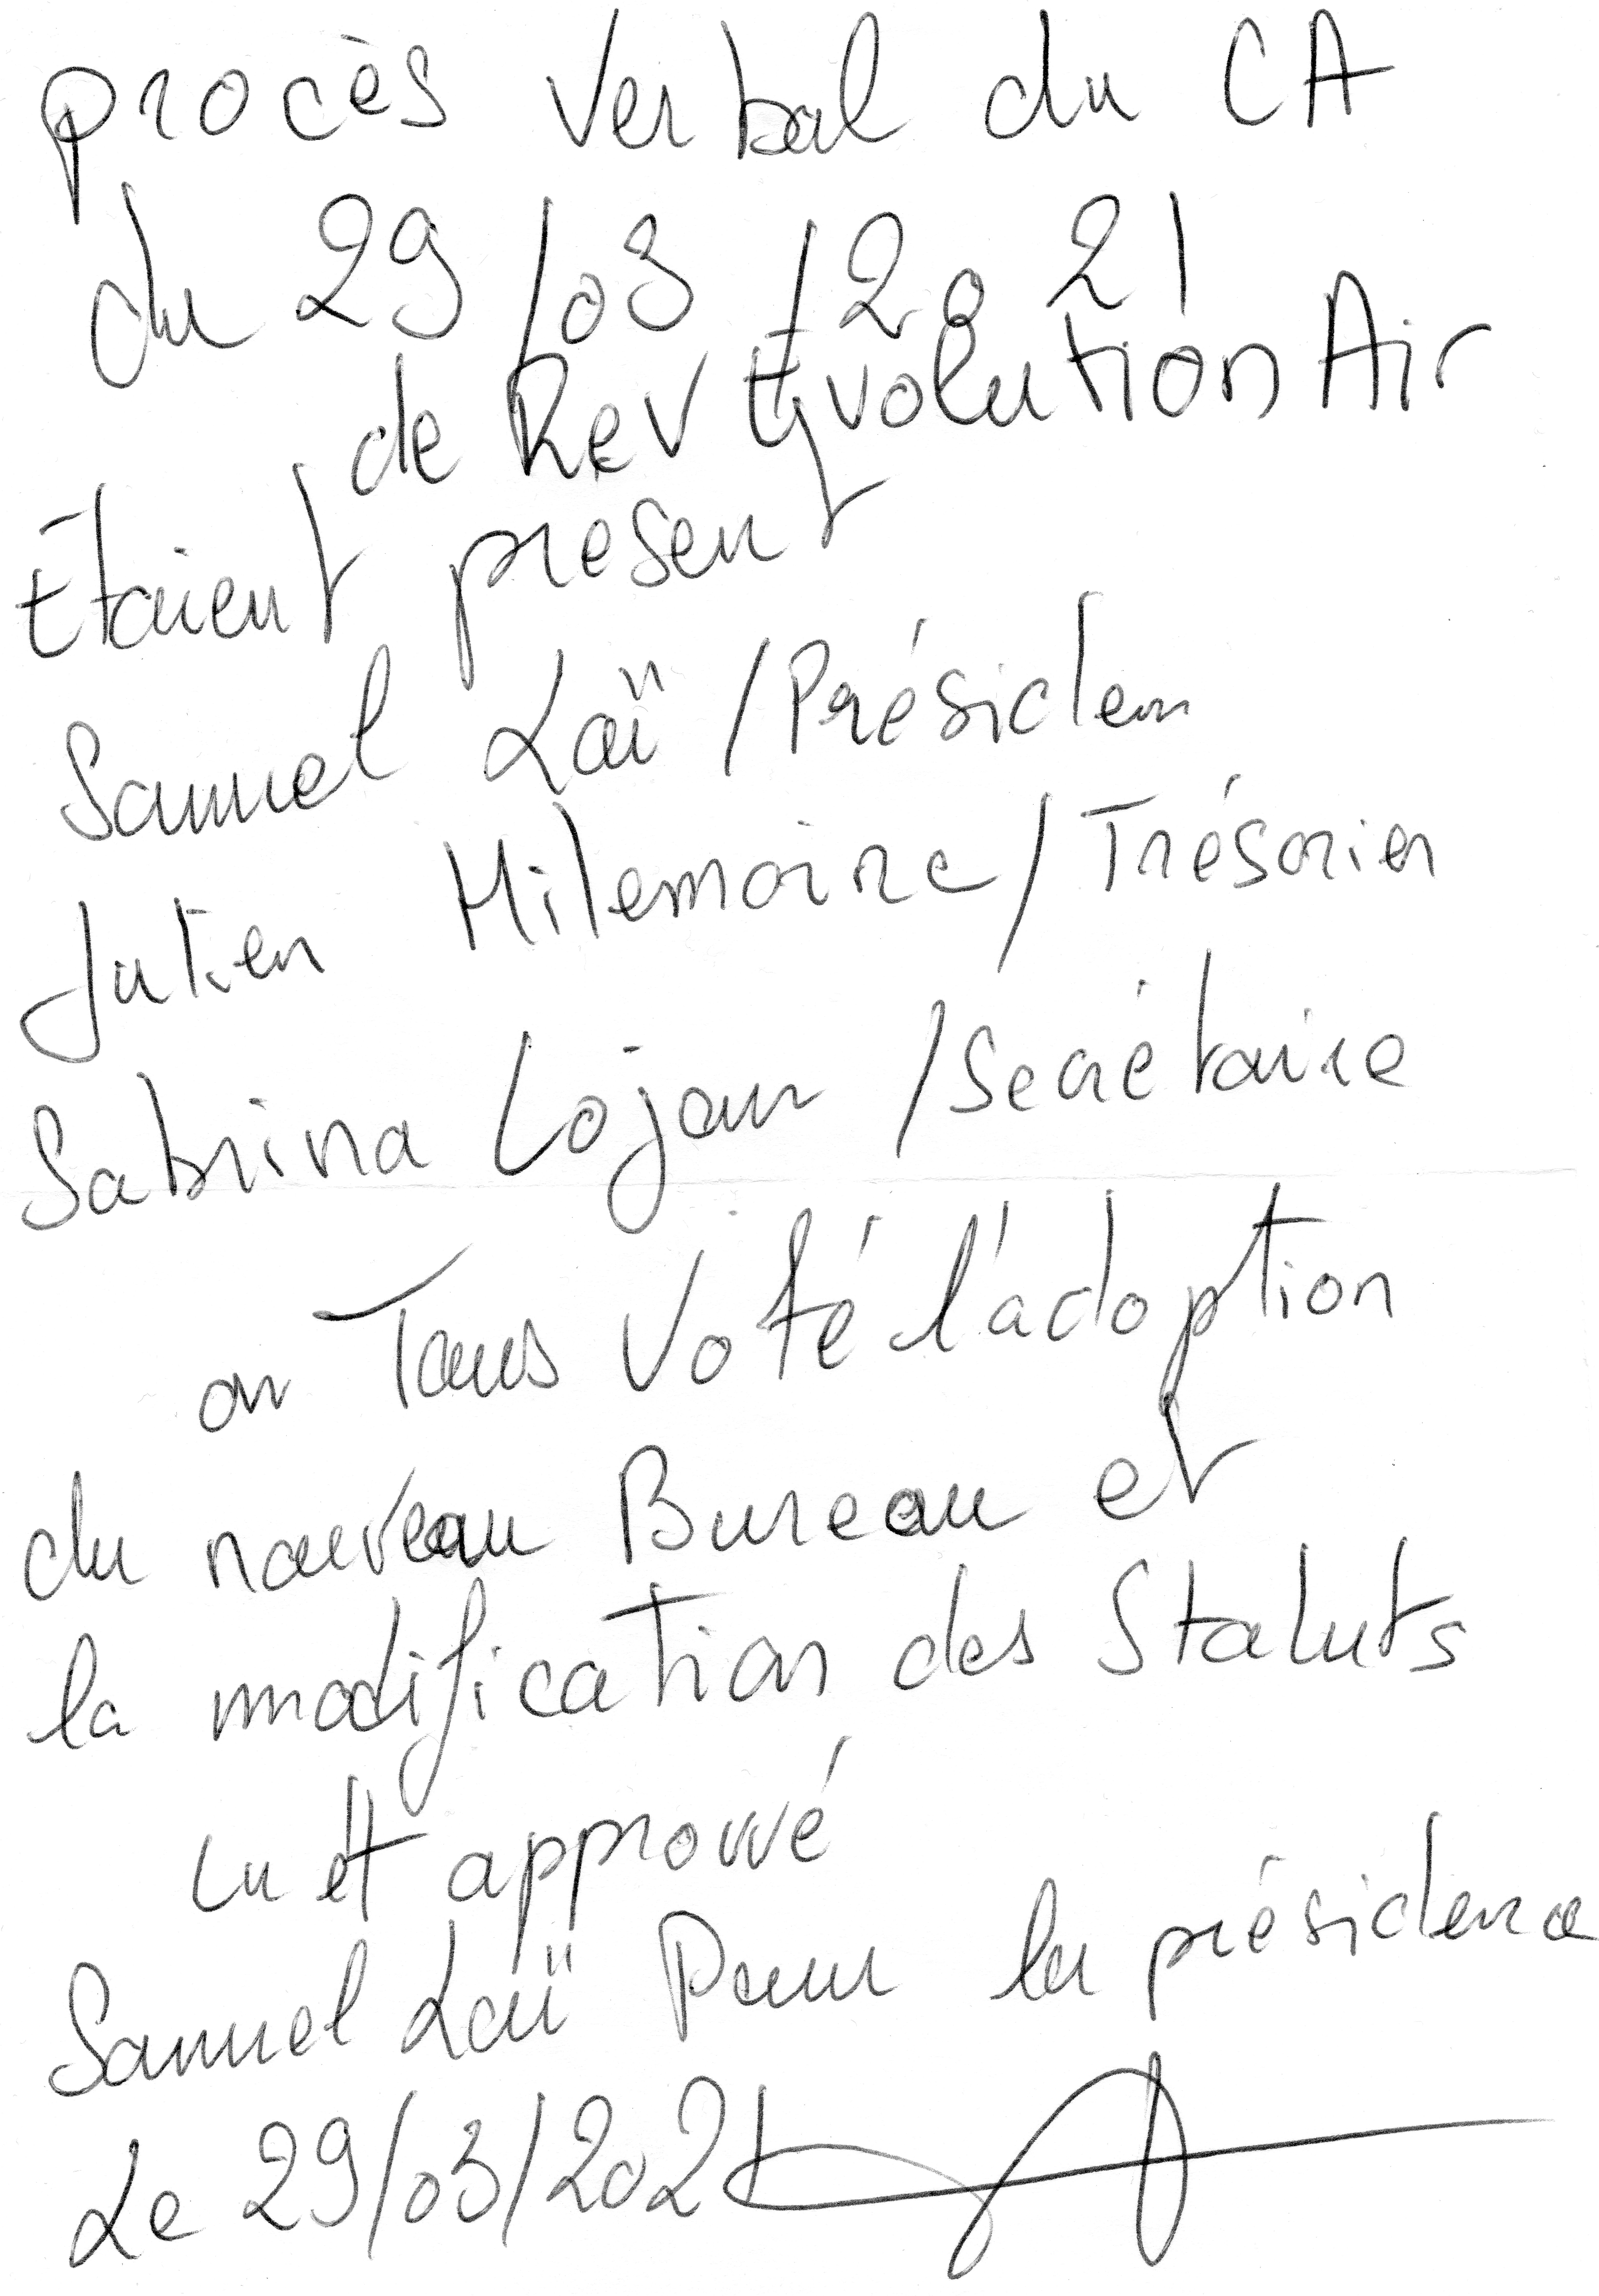 procès verbal du CA
du 29/03/2021
de Rev Evolution Air
Étaient présent
Samuel Laï / Présiden
Julien Milemoine / Trésorier
Sabrina Lojou / Secrétaire
on Tous Voté l'adoption
du nouveau Bureau et
la modification des Statuts
Lu et approuvé
Samuel Laï Pour la présidence
Le 29/03/2021